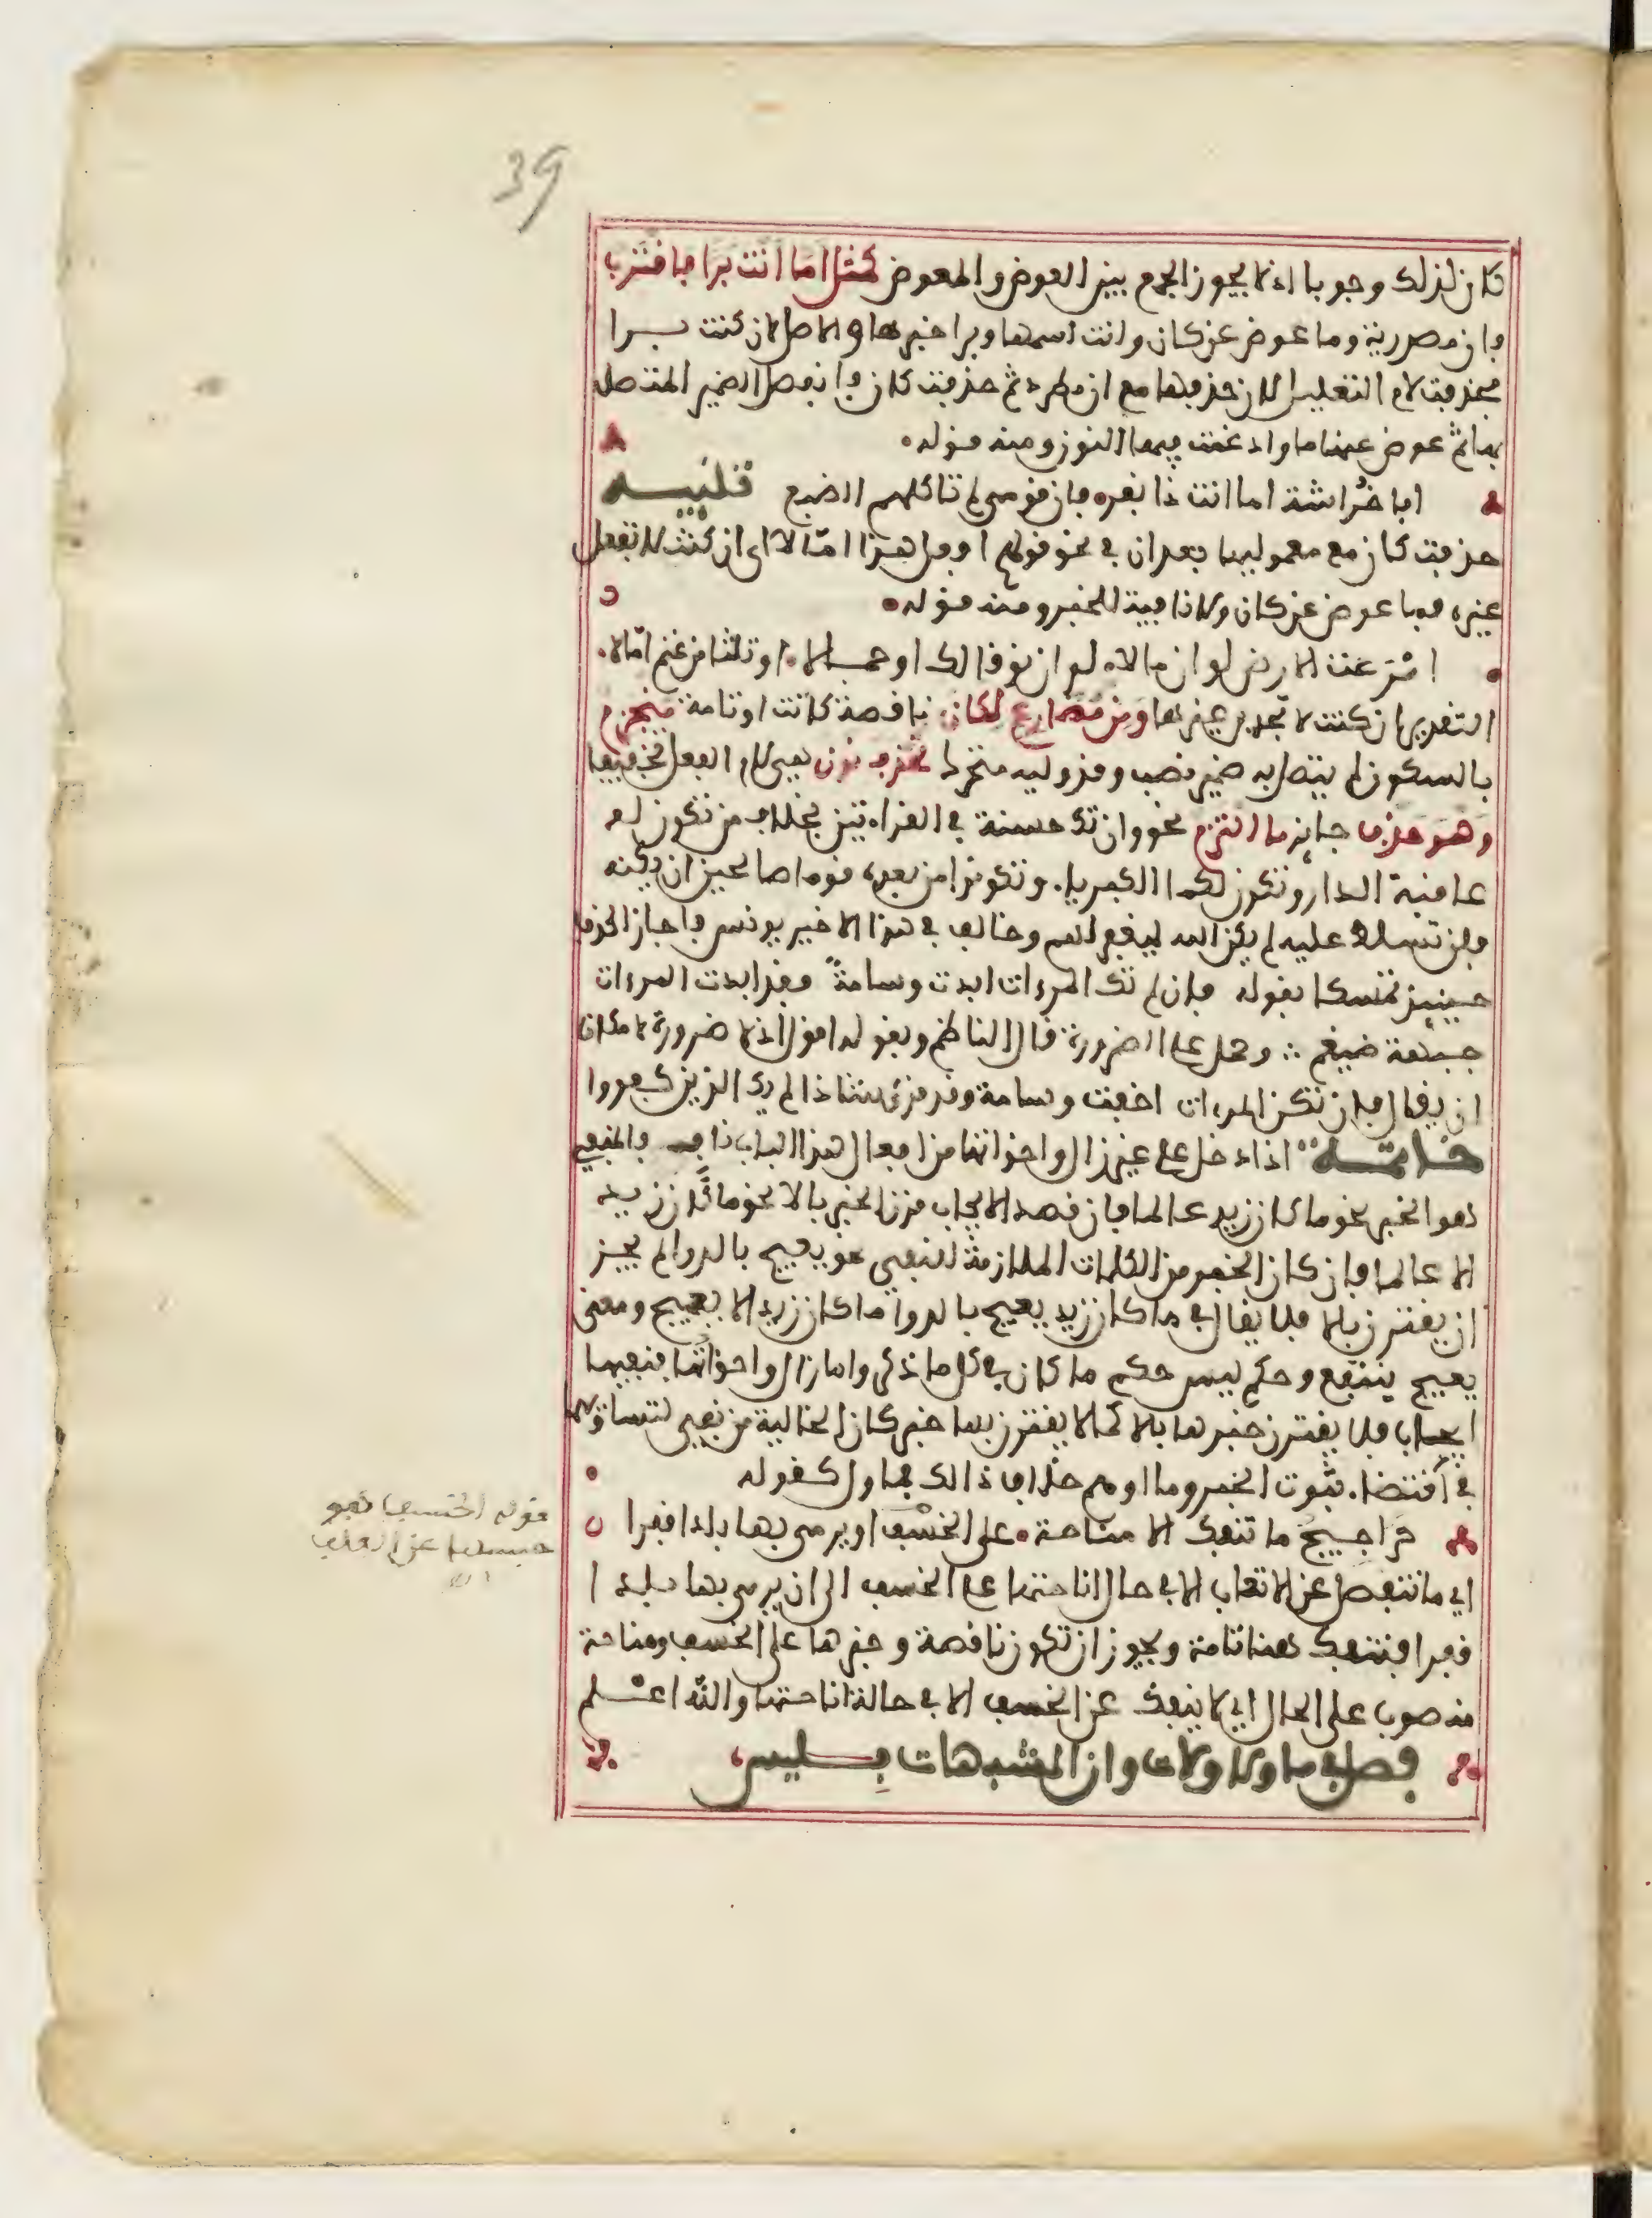 39
كان لذلك وجوبا اذ لا يجوز الجمع بين العوض والمعوض كمثل اما انت برا فاقترب
فان مصدرية وما عوض عن كان وانت اسمها وبرا خبرها والاصل لان كنت برا
فحذفت لام التعليل لان حذفها مع ان مطرد ثم حذفت كان فانفصل الضمير المتصل
بها ثم عوض عنها ما وادغمت فيها النون ومنه قوله
ابا خراشة اما انت ذا نفر فان قومي لم تاكلهم الضبع تنبيه
حذفت كان مع معموليها بعد ان في نحو قولهم افعل هذا امّا لا اي ان كنت لا تفعل
غيره فما عوض عن كان ولا نافية للخبر ومنه قوله
امرعت الارض لو ان مالا لو ان نوقا لك او جمالا او ثلثا من غنم امّا لا
التقدير ان كنت لا تجد غيرها ومن مضارع لكان ناقصة كانت او تامة منجزم
بالسكون لم يتصل به ضمير نصب وقد وليه متحرك تحذف نون هي لام الفعل تخفيفا
وهو حذف جايز ما التزم نحو وان تك حسنة في القراءتين بخلاف من تكون له
عاقبة الدار وتكون لكما الكبرياء وتكونوا من بعده قوما صالحين ان يكنه
فلن تسلط عليه لم يكن الله ليغفر لهم وخالف في هذا الاخير يونس فاجاز الحذف
حينيذ تمسكا بقوله فان لم تك المرءات ابدت وسامة فقد ابدت المرءات
جبهة ضيغم وحمل على الضرورة قال الناظم وبقوله اقول اذ لا ضرورة لامكان
ان يقال فان تكن المرءات اخفت وسامة وقد قرئ شاذا لم يك الذين كفروا
خاتمة اذا دخل على غير زال واخواتها من افعال هذا الباب ناف فالمنفي
هو الخبر نحو ما كان زيد عالما فان قصد الايجاب قرن الخبر بالا نحو ما كان زيد
الا عالما فان كان الخبر من الكلمات الملازمة للنفي نحو يعيج بالدوا لم يجز
ان يقترن بالا فلا يقال في ما كان زيد يعيج بالدوا ما كان زيد الا يعيج ومعنى
يعيج ينتفع وحكم ليس حكم ما كان في كل ما ذكر واما زال واخواتها فنفيها
ايجاب فلا يقترن خبرها بالا كما لا يقترن بها خبر كان الخالية من نفي لتساويهما
في اقتضاء ثبوت الخبر وما اوهم خلاف ذالك فماول كقوله
حراجيج ما تنفك الا مناخة على الخسف او يرمى بها بلدا قفرا
اي ما تنفصل عن الاتعاب الا في حال اناختها على الخسف الى ان يرمى بها بلدا
قفرا فتنفك هنا تامة ويجوز ان تكون ناقصة وخبرها على الخسف ومناخة
منصوب على الحال اي لا ينفك عن الخسف الا في حالة اناختها والله اعلم
فصل في ما ولا ولات وان المشبهات بليس
قوله الخسف هو
حبسها عن العلف